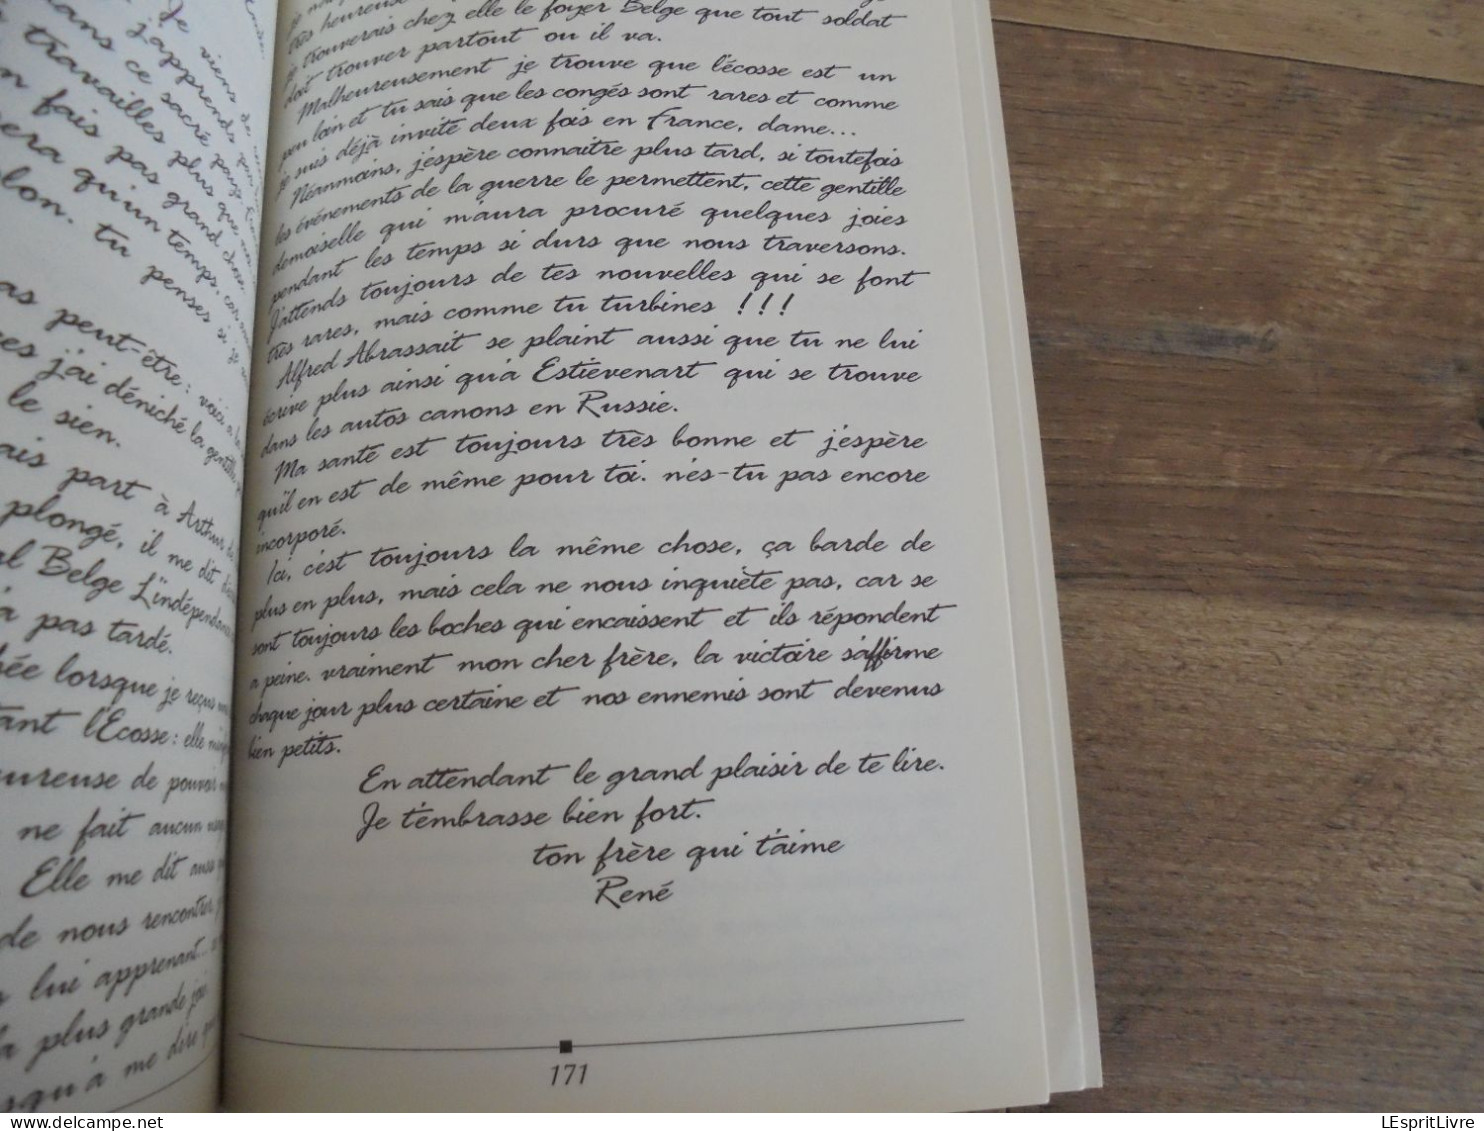 Je viens de
j'apprends
dans ce sacré pays
travailles plus que
n fais pas grand chose
pera qu'un temps, car
lon. tu penses si je
as peut-être: voici
ces j'ai déniché la gentille
le sien.
ais part à Arthur
plongé, il me dit
al Belge L'indépendance
a pas tardé.
hée lorsque je reçus
tant l'Ecosse: elle
ureuse de pouvoir
ne fait aucun
Elle me dit aussi
de nous rencontrer
lui apprenant...
la plus grande joie
squ'à me dire que
très heureuse
je trouverais chez elle le foyer Belge que tout soldat
doit trouver partout ou il va.
Malheureusement je trouve que l'écosse est un
peu loin et tu sais que les congés sont rares et comme
je suis déjà invité deux fois en France, dame...
Néanmoins, j'espère connaitre plus tard, si toutefois
les événements de la guerre le permettent, cette gentille
demoiselle qui m'aura procuré quelques joies
pendant les temps si durs que nous traversons.
J'attends toujours de tes nouvelles qui se font
très rares, mais comme tu turbines !!!
Alfred Abrassait se plaint aussi que tu ne lui
écrive plus ainsi qu'à Estiévenart qui se trouve
dans les autos canons en Russie.
Ma santé est toujours très bonne et j'espère
qu'il en est de même pour toi. n'és-tu pas encore
incorporé.
Ici, c'est toujours la même chose, ça barde de
plus en plus, mais cela ne nous inquiète pas, car se
sont toujours les boches qui encaissent et ils répondent
a peine. vraiment mon cher frère, la victoire s'affirme
chaque jour plus certaine et nos ennemis sont devenus
bien petits.
En attendant le grand plaisir de te lire.
Je t'embrasse bien fort.
ton frère qui t'aime
René
171
LEspritLivre